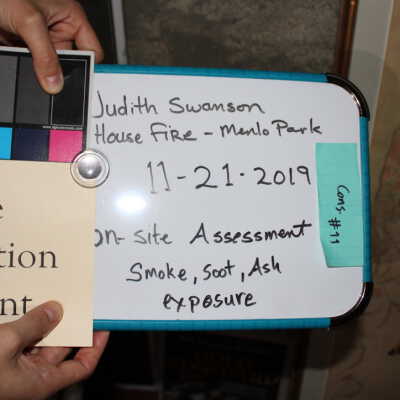 Judith Swanson
House Fire - Menlo Park
11-21-2019
On-site Assessment
Smoke, Soot, Ash
exposure
Cons. #11
e
tion
nt